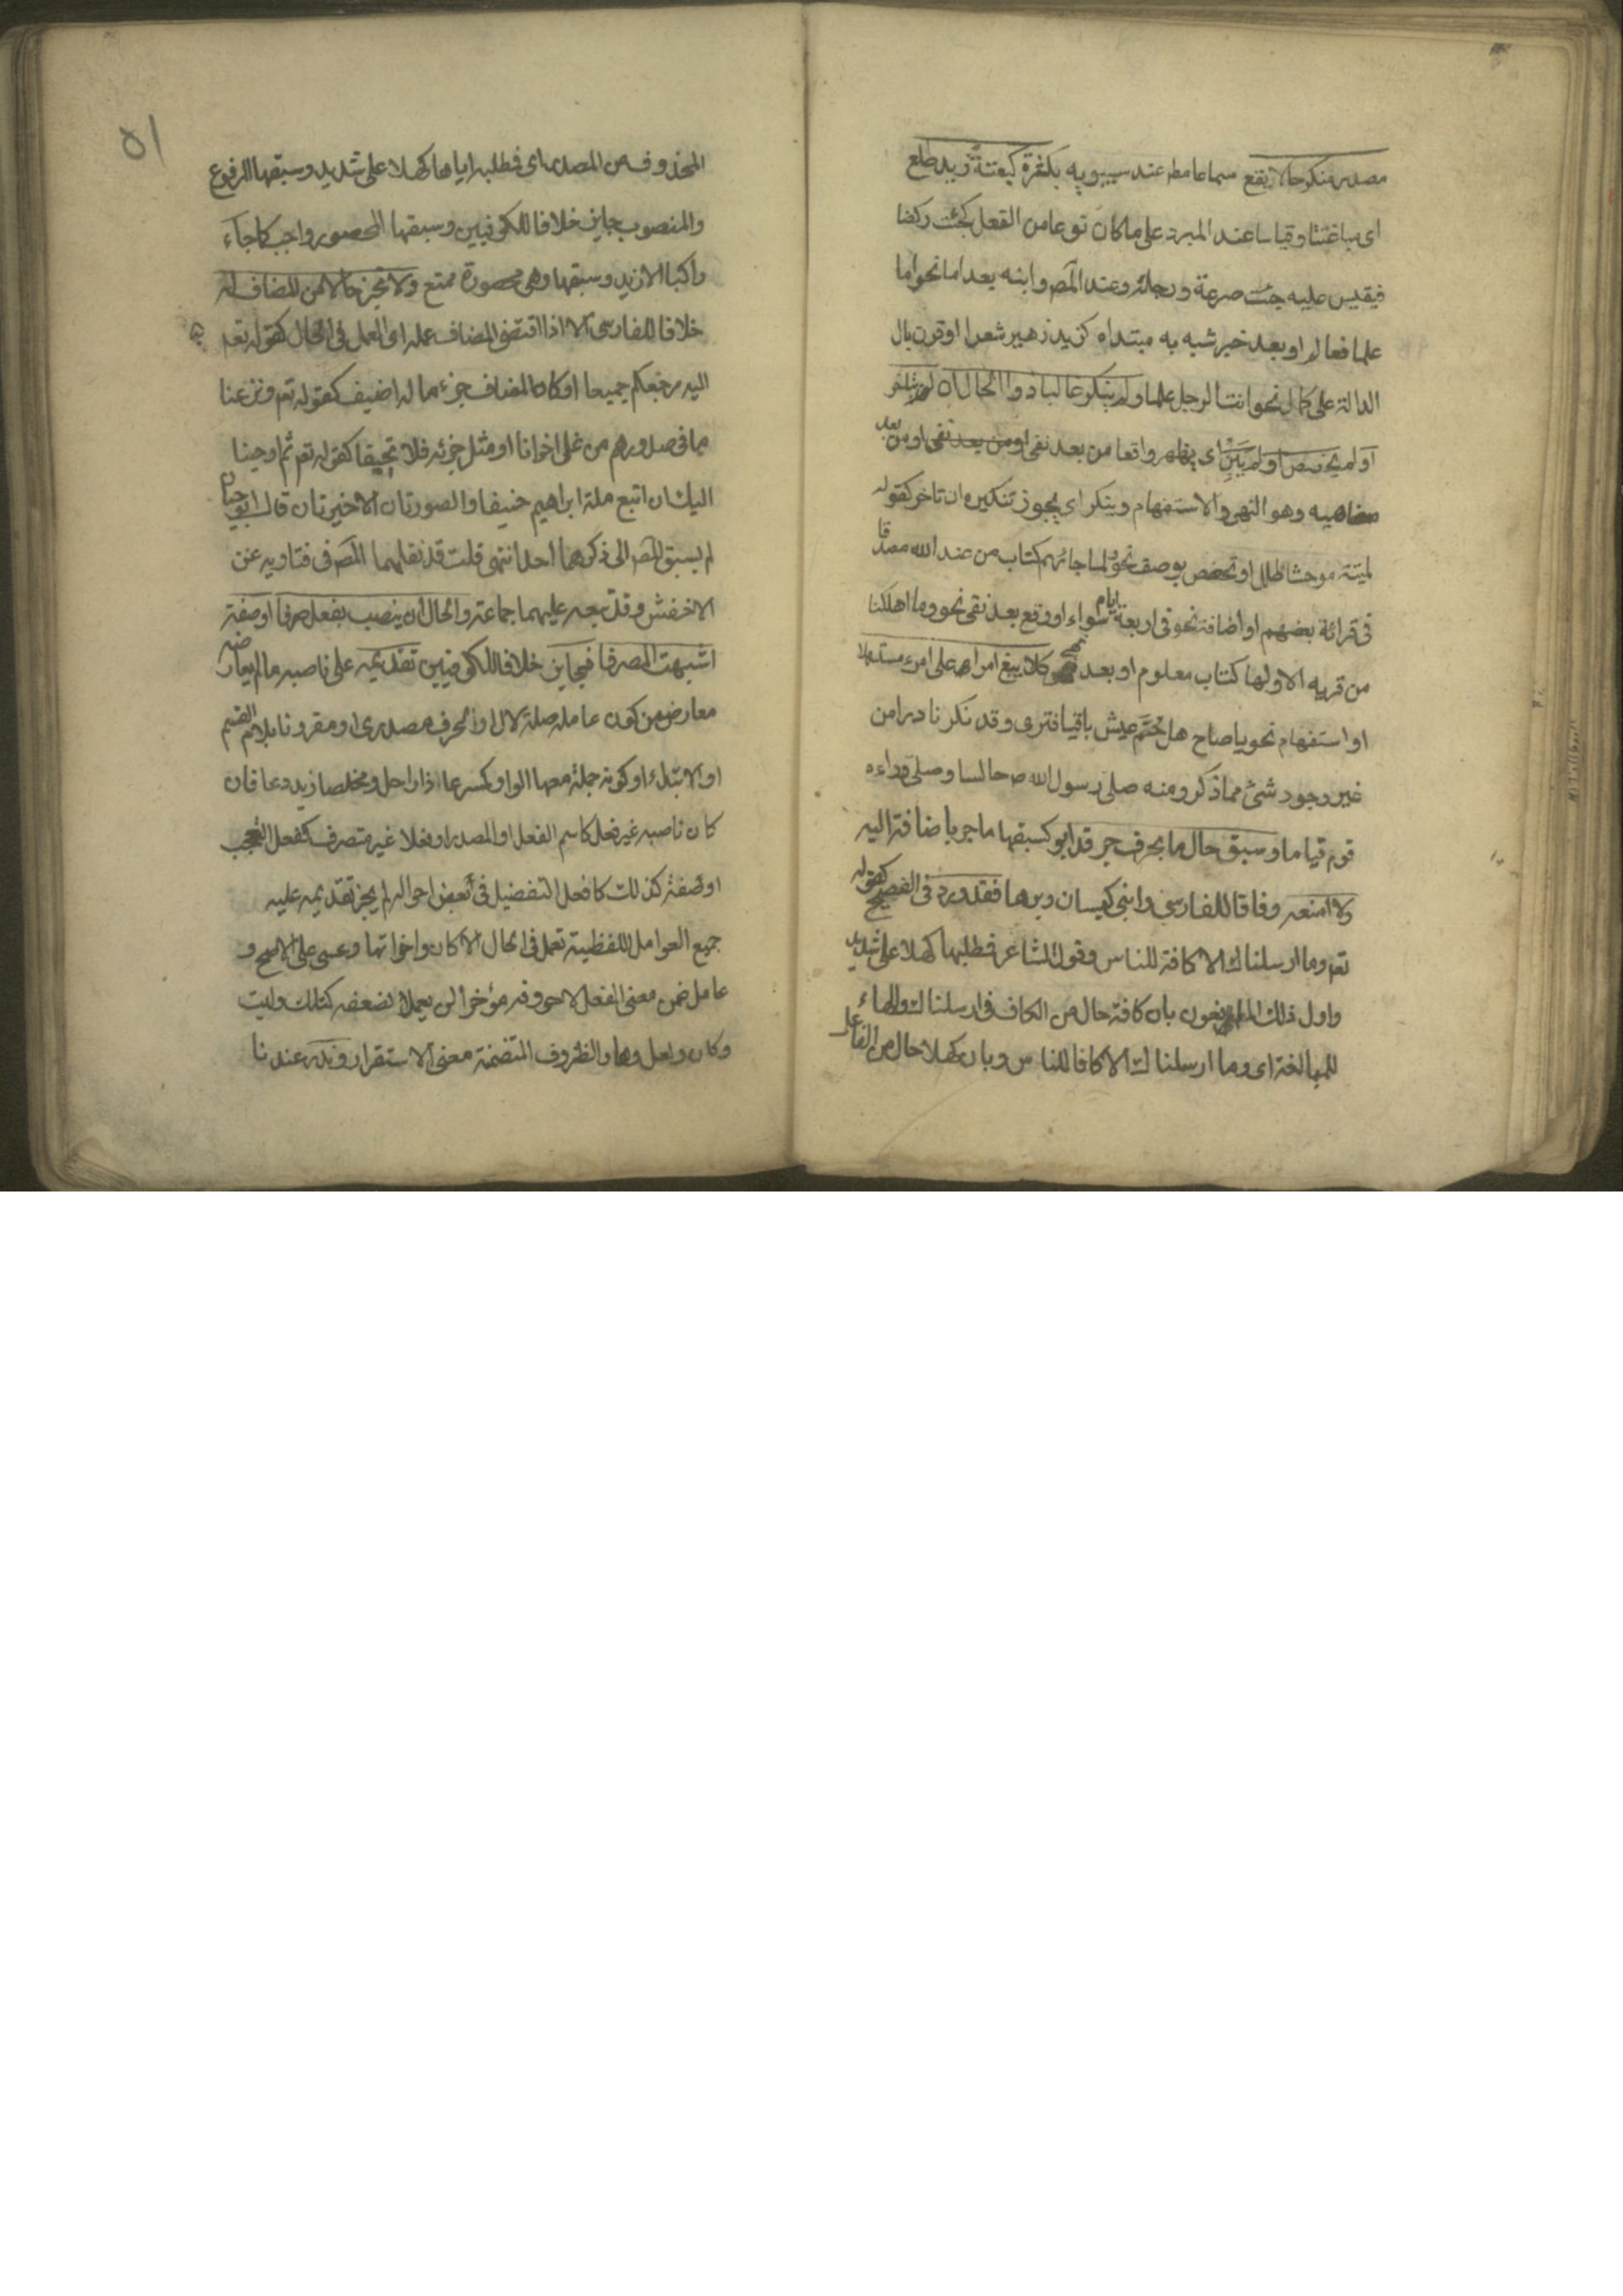 مصدر منكر حالا يقع سماعا مط عند سيبويه بكثرة كبغتة زيد طلع
اى مباغتا وقياسا عند المبرد على ما كان نوعا من الفعل كجئت ركضا
فيقيس عليه جئت سرعة ورجلة وعند المص وابنه بعد اما نحو اما
علما فعالم او بعد خبر شبه به مبتداه كزيد زهير شعرا او قرن بال
الدالة على كمال نحو انت الرجل علما ولم ينكر غالبا ذو الحال ان لم يتاخر
او لم يخصص او لم يَبِنْ اى يظهر واقعا من بعد نفى او من بعد
مضاهيه وهو النهى والاستفهام وينكر اى يجوز تنكيره ان تاخر كقوله
لمية موحشا طلل او تخصص بوصف نحو ولما جائهم كتاب من عند الله مصدقا
فى قرائة بعضهم او اضافة نحو فى اربعة ايام سواء او وقع بعد نفى نحو وما اهلكنا
من قريه الا ولها كتاب معلوم او بعد نهى كلا يبغ امرء على امرء مستسهلا
او استفهام نحو يا صاح هل حُمَّ عيش باقيا فترى وقد نكر نادرا من
غير وجود شئ مما ذكر ومنه صلى رسول الله ص جالسا وصلى وراءه
قوم قياما وسبق حال ما بحرف جر قد ابو كسبقها ما جر باضافة اليه
ولا امنعه وفاقا للفارسى وابنى كيسان وبرهان فقد ورد فى الفصيح كقوله
تعم وما ارسلناك الا كافة للناس وقول الشاعر فمطلبها كهلا عليه شديد
واول ذلك المانعون بان كافة حال من الكاف فى ارسلناك والهاء
للمبالغة اى وما ارسلناك الا كافا للناس وبان كهلا حال من الفاعل
٥١
المحذوف من المصدر اى فمطلبه اياها كهلا على شديد وسبقها المرفوع
والمنصوب جايز خلافا للكوفيين وسبقها المحصور واجب كما جاء
راكبا الا زيد وسبقها وهى محصورة ممتنع ولا تجز حالا من المضاف له
خلافا للفارسى الا اذا اقتضى المضاف عمله اى العمل فى الحال كقوله تعم
اليه مرجعكم جميعا او كان المضاف جزء ما له اضيف كقوله تعم ونزعنا
ما فى صدورهم من غل اخوانا او مثل جزئه فلا تحيفا كقوله تعم ثم اوحينا
اليك ان اتبع ملة ابراهيم حنيفا والصورتان الاخيرتان قال ابو حيان
لم يسبق المص الى ذكرهما احد انتهى قلت قد نقلهما المص فى فتاويه عن
الاخفش وقد تبعه عليهما جماعة والحال ان ينصب بفعل صرفا او صفة
اشبهت المصرفا فجايز خلافا للكوفيين تقديمه على ناصبه ما لم يعارضه
معارض من كون عامله صلة لال او لحرف مصدرى او مقرونا بلام القسم
او الابتداء او كونه جملة معها الواو كمسرعا ذا راحل ومخلصا زيد دعا فان
كان ناصبه غير فعل كاسم الفعل او المصدر او فعلا غير متصرف كفعل التعجب
او صفة كذلك كافعل التفضيل فى بعض احواله لم يجز تقديمه عليه
جميع العوامل اللفظية تعمل فى الحال الا كان واخواتها وعسى على الاصح و
عامل ضمن معنى الفعل لا حروفه مؤخرا لن يعملا لضعفه كتلك وليت
وكان ولعل وها والظروف المتضمنة معنى الاستقرار وندر عندنا